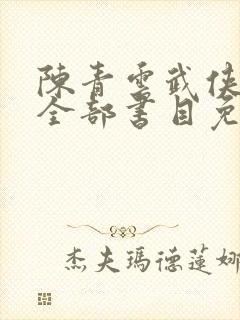 陳青雲武俠
全部書目免
杰夫瑪德蓮娜